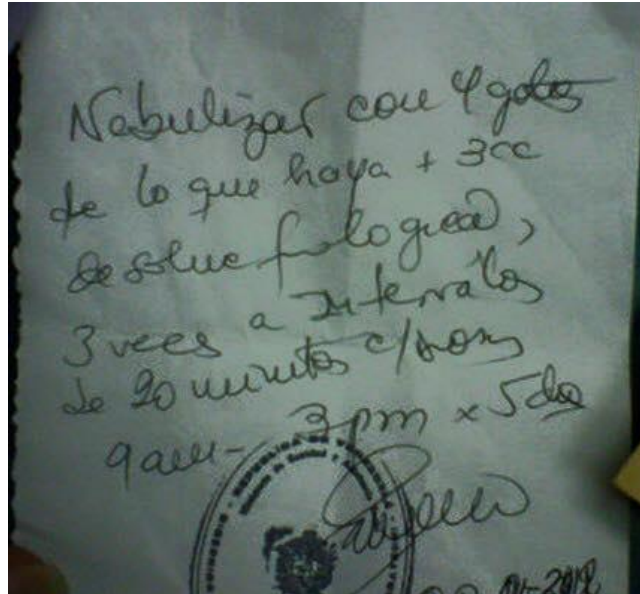 Nebulizar con 4 gotas
de lo que haya + 3cc
de soluc fisiologica,
3 veces a intervalos
de 20 minutos
9am - 3pm x 5 dias